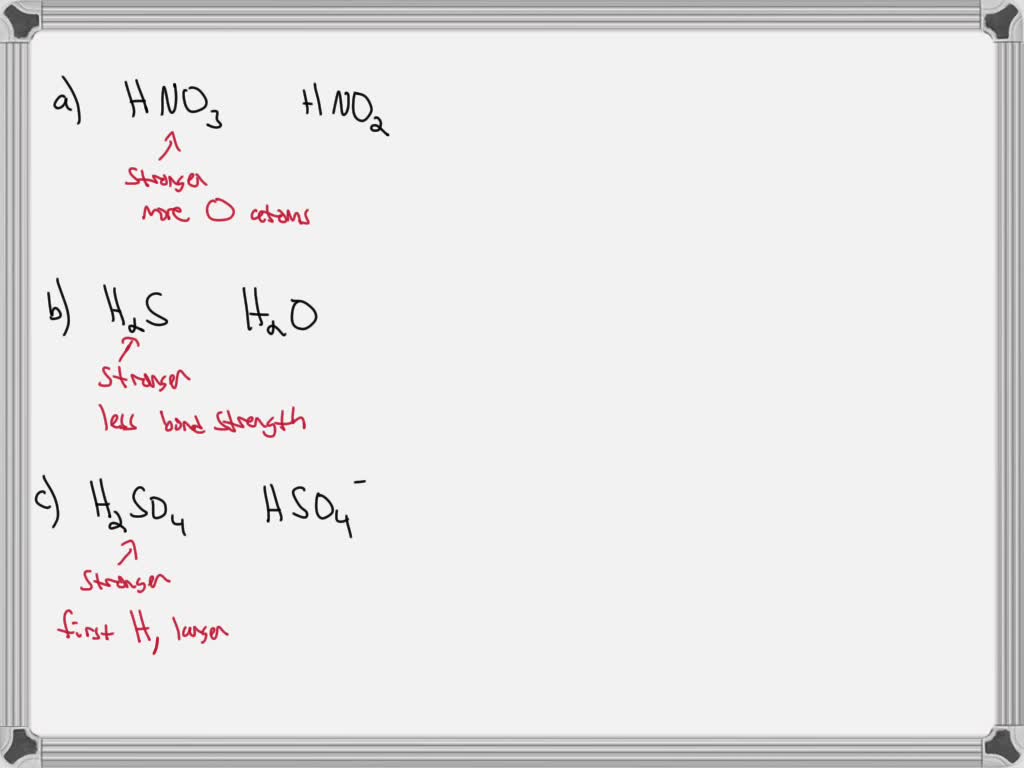 a) HNO₃ HNO₂
Stronger
more O atoms
b) H₂S H₂O
Stronger
less bond strength
c) H₂SO₄ HSO₄⁻
Stronger
first H, larger